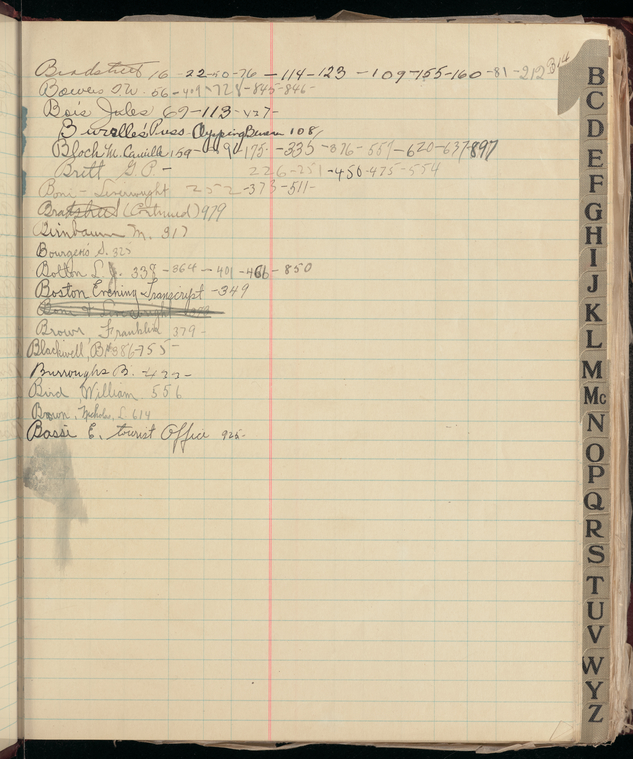 Bradstreet 16-22-50-76-114-123-109-155-160-81-212
Bowers
Bois Jules 69-113-
Burelles Press Clypping Bureau 108
Bloch M. Camille 159-175-335-376-620-637-897
Britt G P- 226-251-450-475-554
Boni-Liverwright 252-373-511-
Bradstreet (Continued) 979
Birnbaum M. 317
Bourgeois S. 325
Bolton L. J. 338-364-401-466-850
Boston Evening Transcript-349
Brown Franklin 379-
Blackwell, B. 386-755-
Burroughs B.
Bird William 556
Brown, Nicholas L. 614
Bassi E, tourist Office 925-
B
C
D
E
F
G
H
I
J
K
L
M
Mc
N
O
P
Q
R
S
T
U
V
W
Y
Z